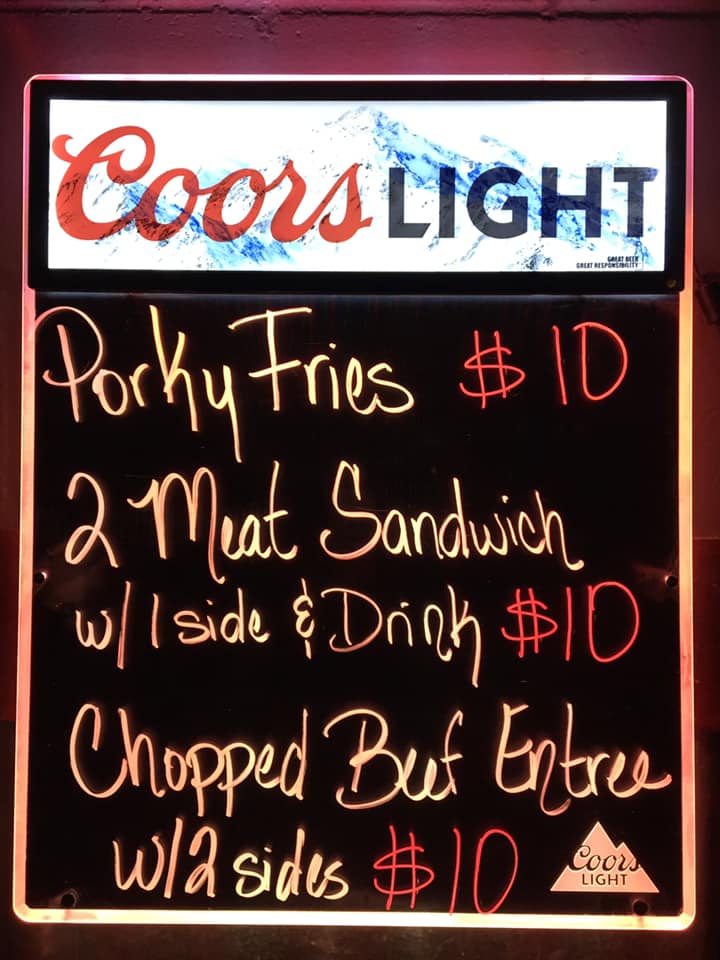 Coors LIGHT
GREAT BEER
GREAT RESPONSIBILITY
Porky Fries $10
2 Meat Sandwich
w/1 side & Drink $10
Chopped Beef Entree
w/2 sides $10
Coors
LIGHT